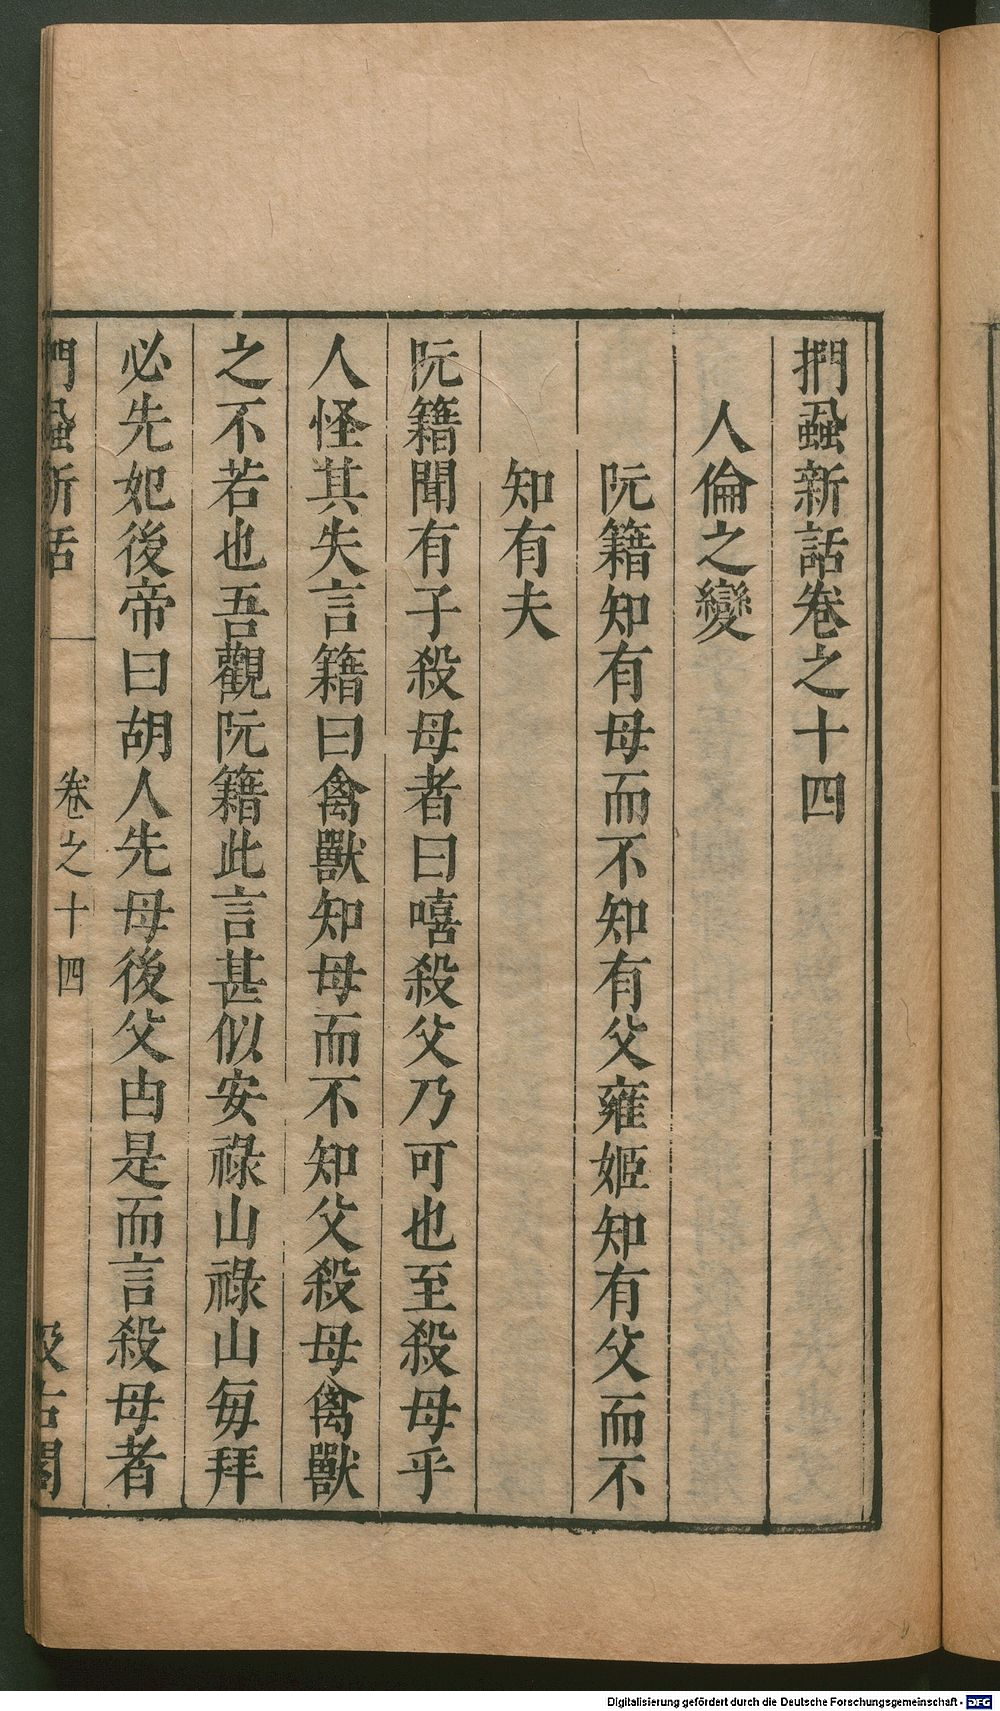 捫蝨新話卷之十四
人倫之變
阮籍知有母而不知有父雍姬知有父而不
知有夫
阮籍聞有子殺母者曰嘻殺父乃可也至殺母乎
人怪其失言籍曰禽獸知母而不知父殺母禽獸
之不若也吾觀阮籍此言甚似安祿山祿山每拜
必先妃後帝曰胡人先母後父由是而言殺母者
捫蝨新話
卷之十四
汲古閣
Digitalisierung gefördert durch die Deutsche Forschungsgemeinschaft - DFG